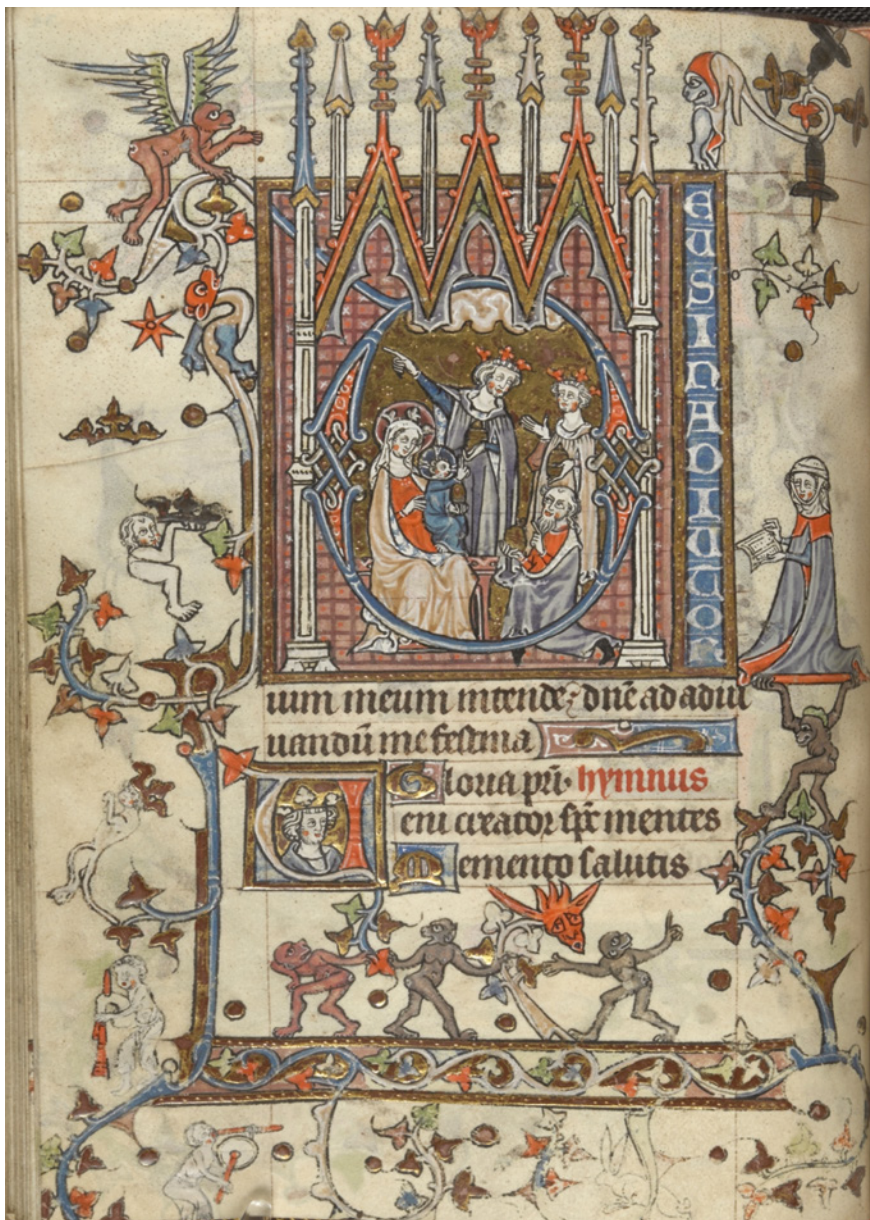 EUSINADIUTOR
ium meum intende; dñe ad adiu
uandū me festina
Gloria pr̄i. hymnus
Ueni creator sp̄c mentes
Memento salutis